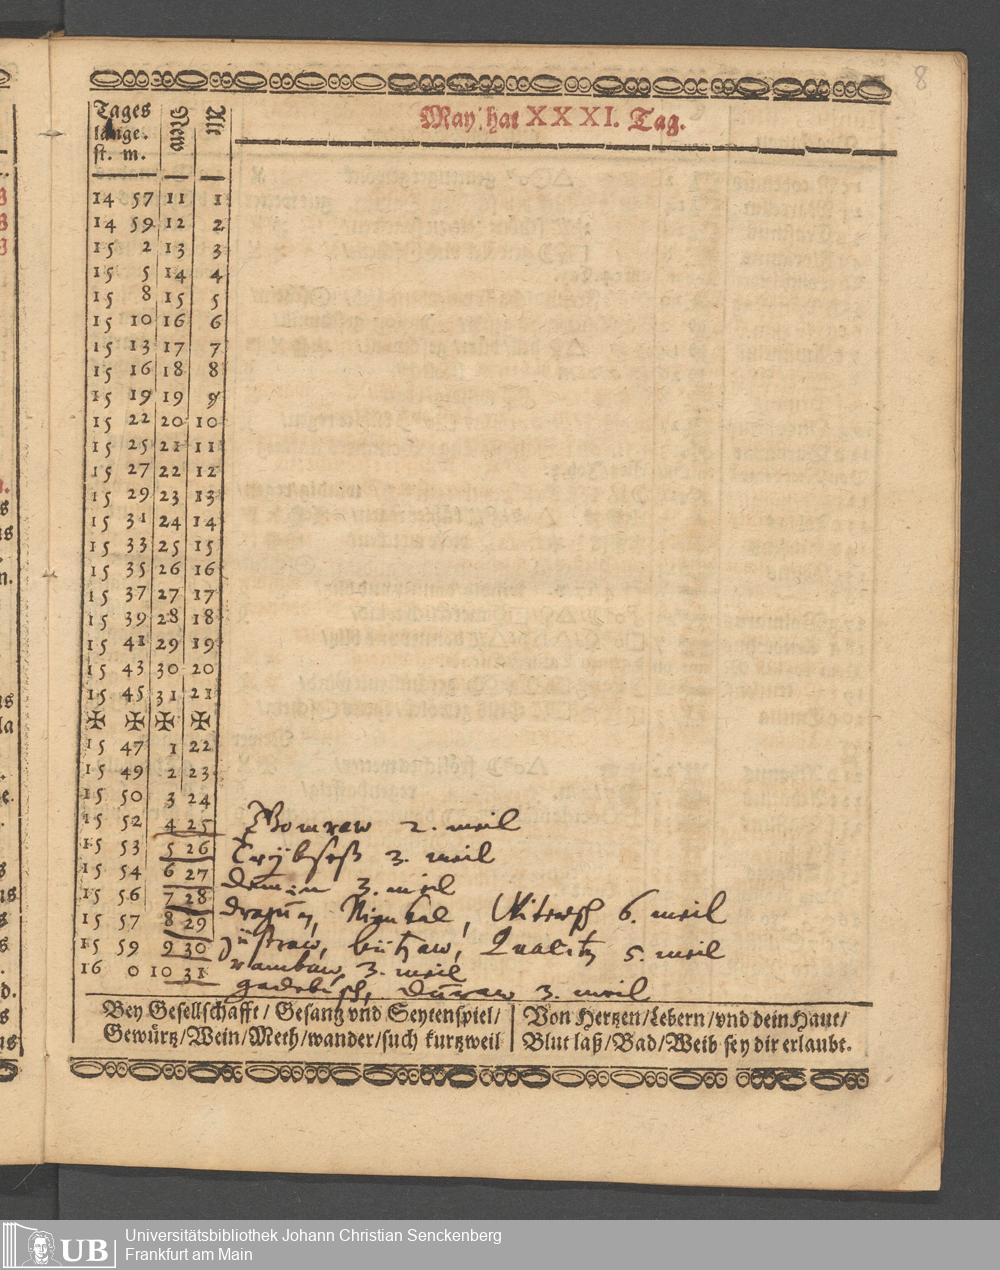 8
May hat XXXI. Tag.
Tages
länge.
st. m.
New
Alt
14 57 11 1
14 59 12 2
15 2 13 3
15 5 14 4
15 8 15 5
15 10 16 6
15 13 17 7
15 16 18 8
15 19 19 9
15 22 20 10
15 25 21 11
15 27 22 12
15 29 23 13
15 31 24 14
15 33 25 15
15 35 26 16
15 37 27 17
15 39 28 18
15 41 29 19
15 43 30 20
15 45 31 21
✠ ✠ ✠ ✠
15 47 1 22
15 49 2 23
15 50 3 24
15 52 4 25 2. meil
15 53 5 26 3. meil
15 54 6 27 demin 3. meil
15 56 7 28 6. meil
15 57 8 29 güstraw, bützaw, Qualitz 5. meil
15 59 9 30 3. meil
16 0 10 31 gadebusch, 3. meil
Bey Gesellschafft / Gesang vnd Seytenspiel /
Gewürtz / Wein / Meth / wander / such kurtzweil
Von Hertzen / Lebern / vnd dein Haut /
Blut laß / Bad / Weib sey dir erlaubt.
UB
Universitätsbibliothek Johann Christian Senckenberg
Frankfurt am Main